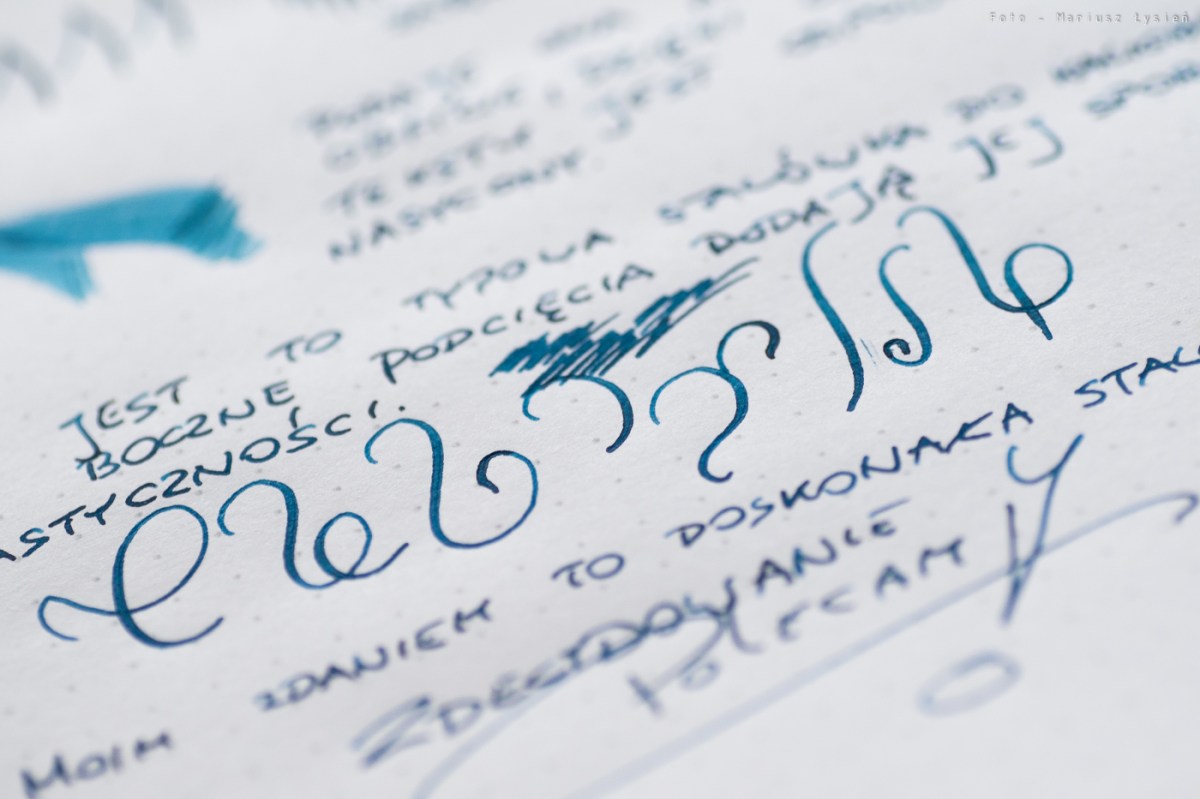 Foto - Mariusz Łysień
TEKSTU JEST
NASYCONY.
JEST TO TYPOWA STALÓWKA DO
BOCZNE PODCIĘCIA DODAJĄ JEJ
ASTYCZNOŚCI.
MOIM ZDANIEM TO DOSKONAŁA STAL
ZDECYDOWANIE
POLECAM